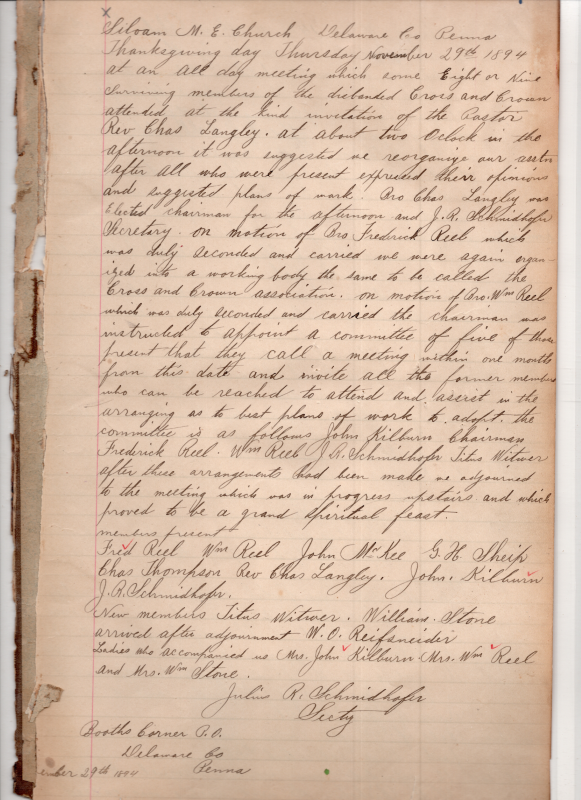 x
Siloam M. E. Church Delaware Co Penna
Thanksgiving day Thursday November 29th 1894
at an all day meeting which some Eight or Nine
surviving members of the disbanded Cross and Crown
attended at the kind invitation of the Pastor
Rev Chas Langley. at about two Oclock in the
afternoon it was suggested we reorganize our asstn
after all who were present expressed their opinions
and suggested plans of work. Bro Chas Langley was
Elected chairman for the afternoon and J. R. Schmidhofer
Secretary. on motion of Bro Frederick Reel which
was duly seconded and carried we were again organ-
ized into a working body the same to be called the
Cross and Crown association. on motion of Bro. Wm Reel
which was duly seconded and carried the chairman was
instructed to appoint a committee of five of those
present that they call a meeting within one month
from this date and invite all the former members
who can be reached to attend and assist in the
arranging as to best plans of work to adopt. the
committee is as follows John Kilburn Chairman
Frederick Reel. Wm Reel J. R. Schmidhofer Titus Witwer
after these arrangements had been made we adjourned
to the meeting which was in progress upstairs and which
proved to be a grand spiritual feast.
members present
Fred Reel Wm Reel John McKee G. H. Sheip
Chas Thompson Rev Chas Langley. John. Kilburn
J. R. Schmidhofer.
New members Titus Witwer. William. Stone
arrived after adjournment W. O. Reifsneider
Ladies who accompanied us Mrs. John Kilburn Mrs. Wm Reel
and Mrs. Wm Stone.
Julius R. Schmidhofer
Secty
Booths Corner P.O.
Delaware Co
ember 29th 1894 Penna